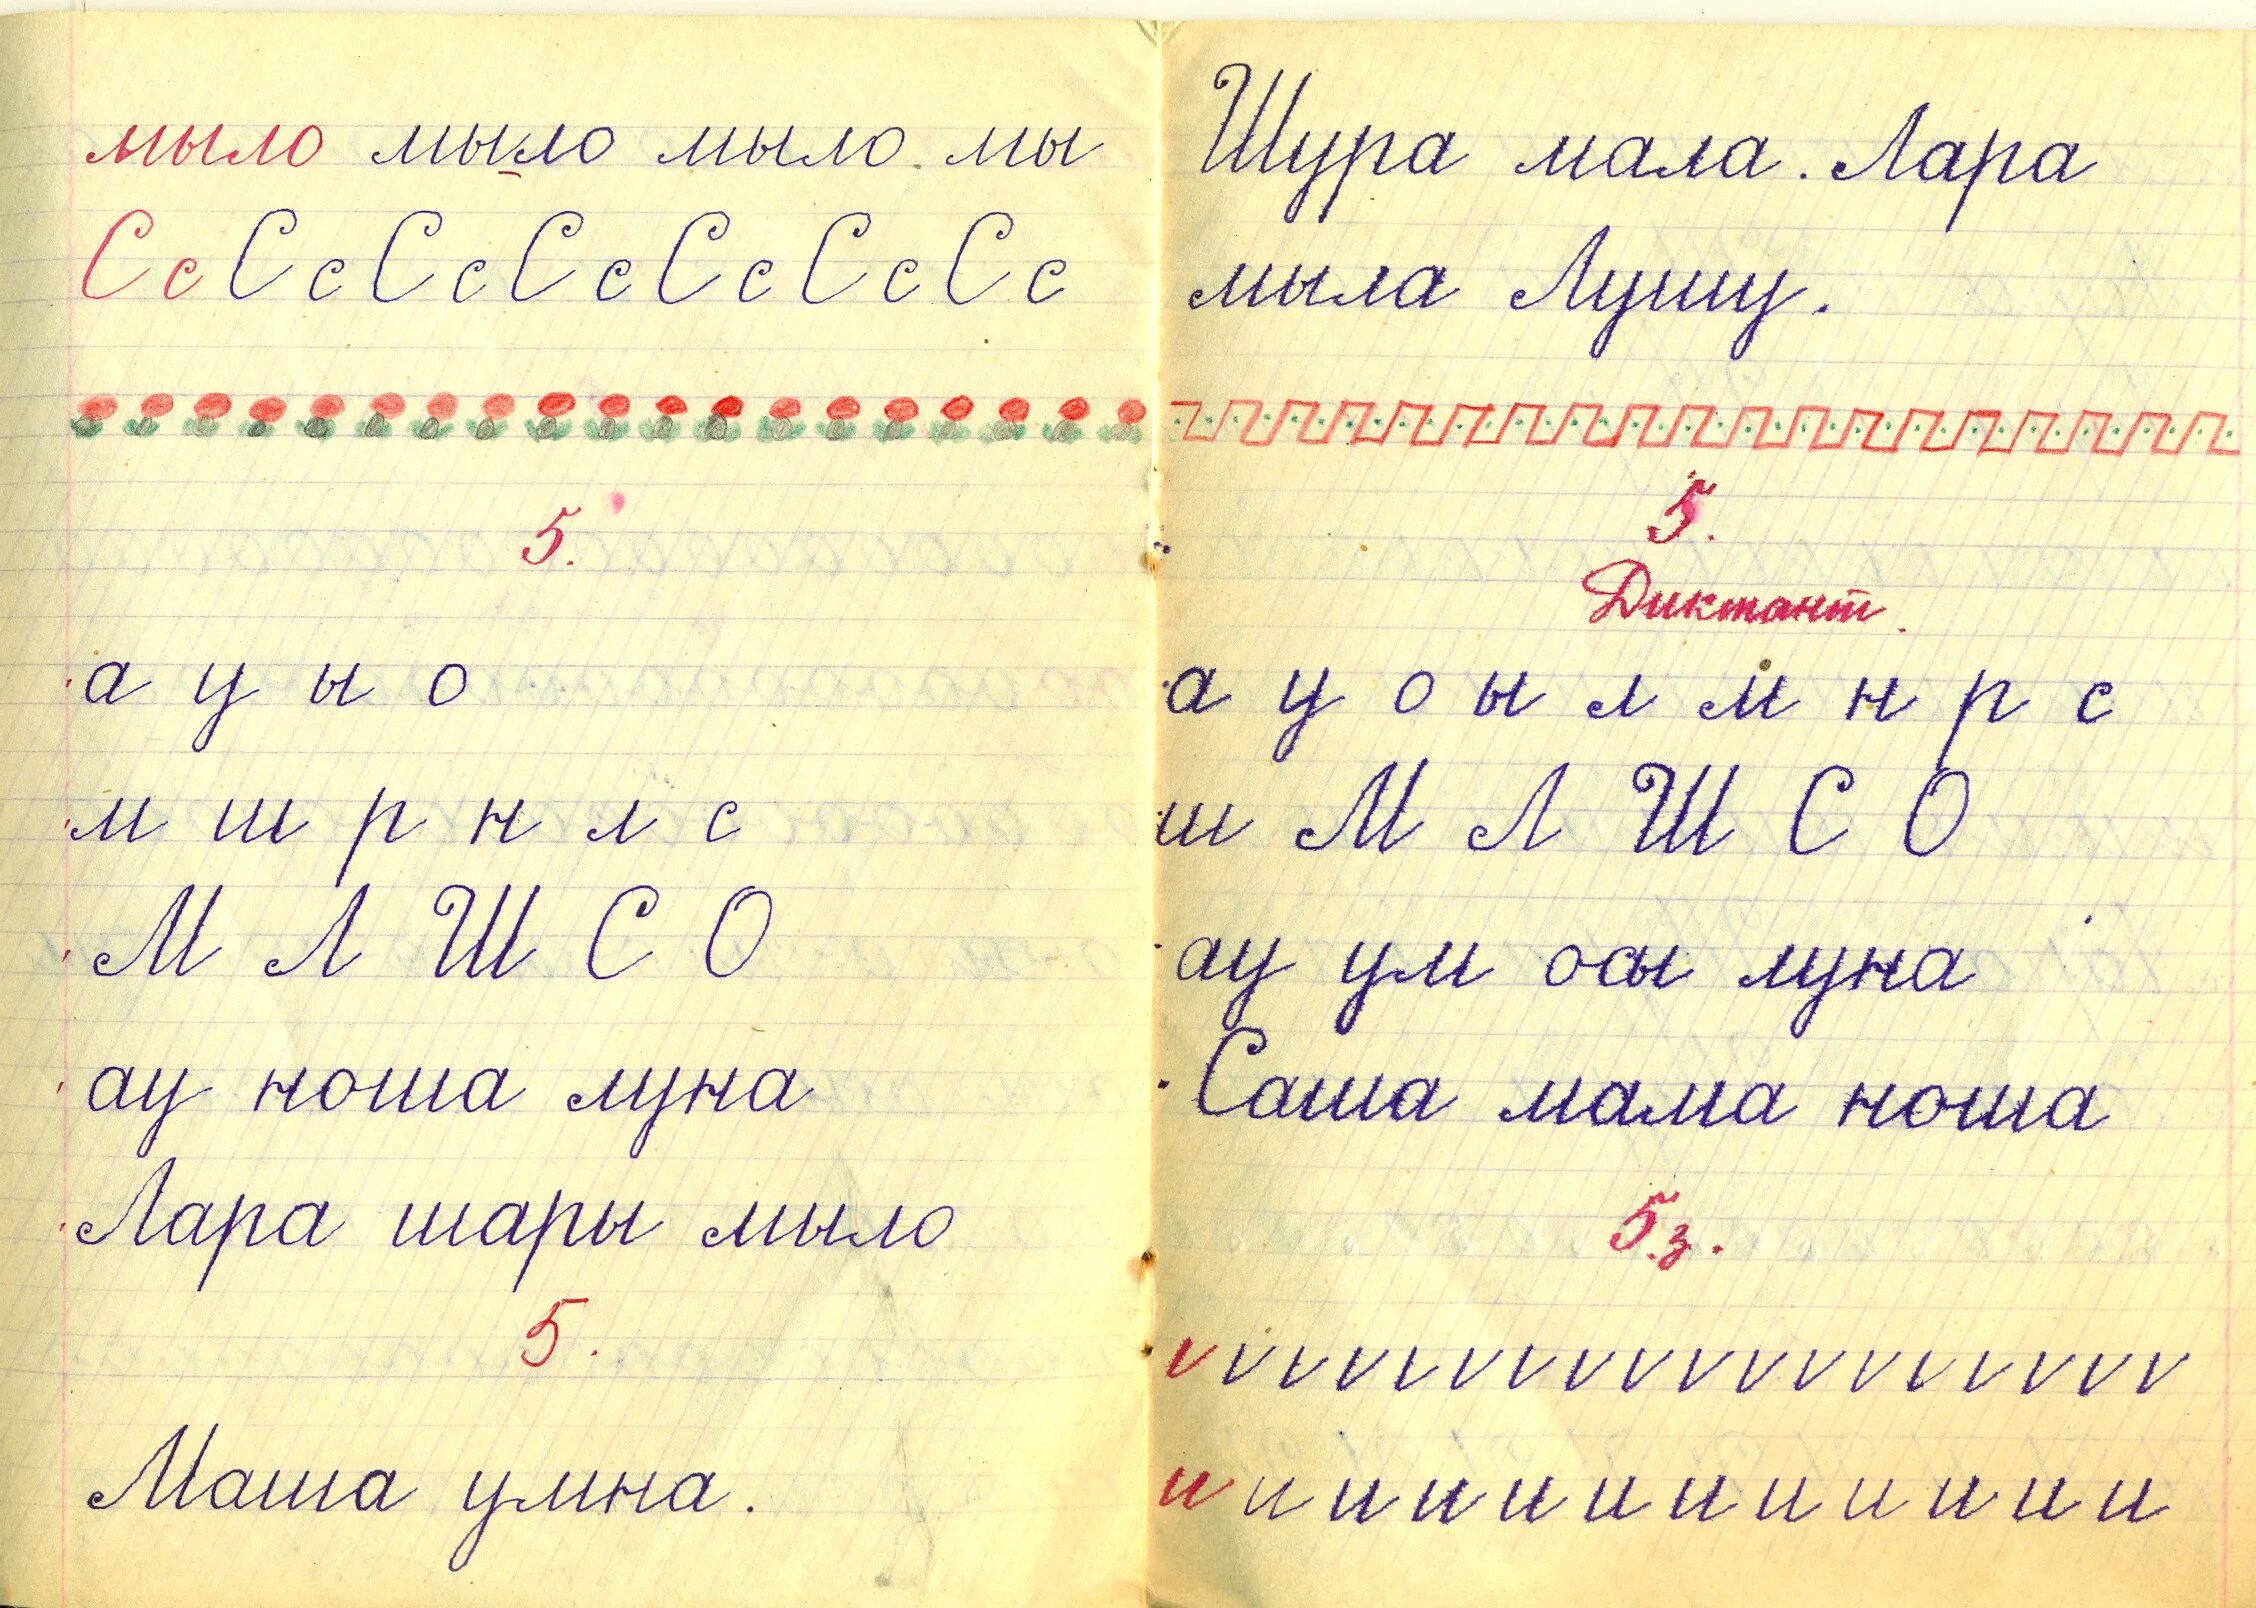 мыло мыло мыло мы
Сс Сс Сс Сс Сс Сс Сс
5.
а у ы о
м ш р н л с
М Л Ш С О
ау ноша луна
Лара шары мыло
5.
Маша умна.
Шура мала. Лара
мыла Лушу.
5.
Диктант.
а у о ы л м н р с
ш М Л Ш С О
ау ум осы луна
Саша мама ноша
5.з.
и и и и и и и и и и и и